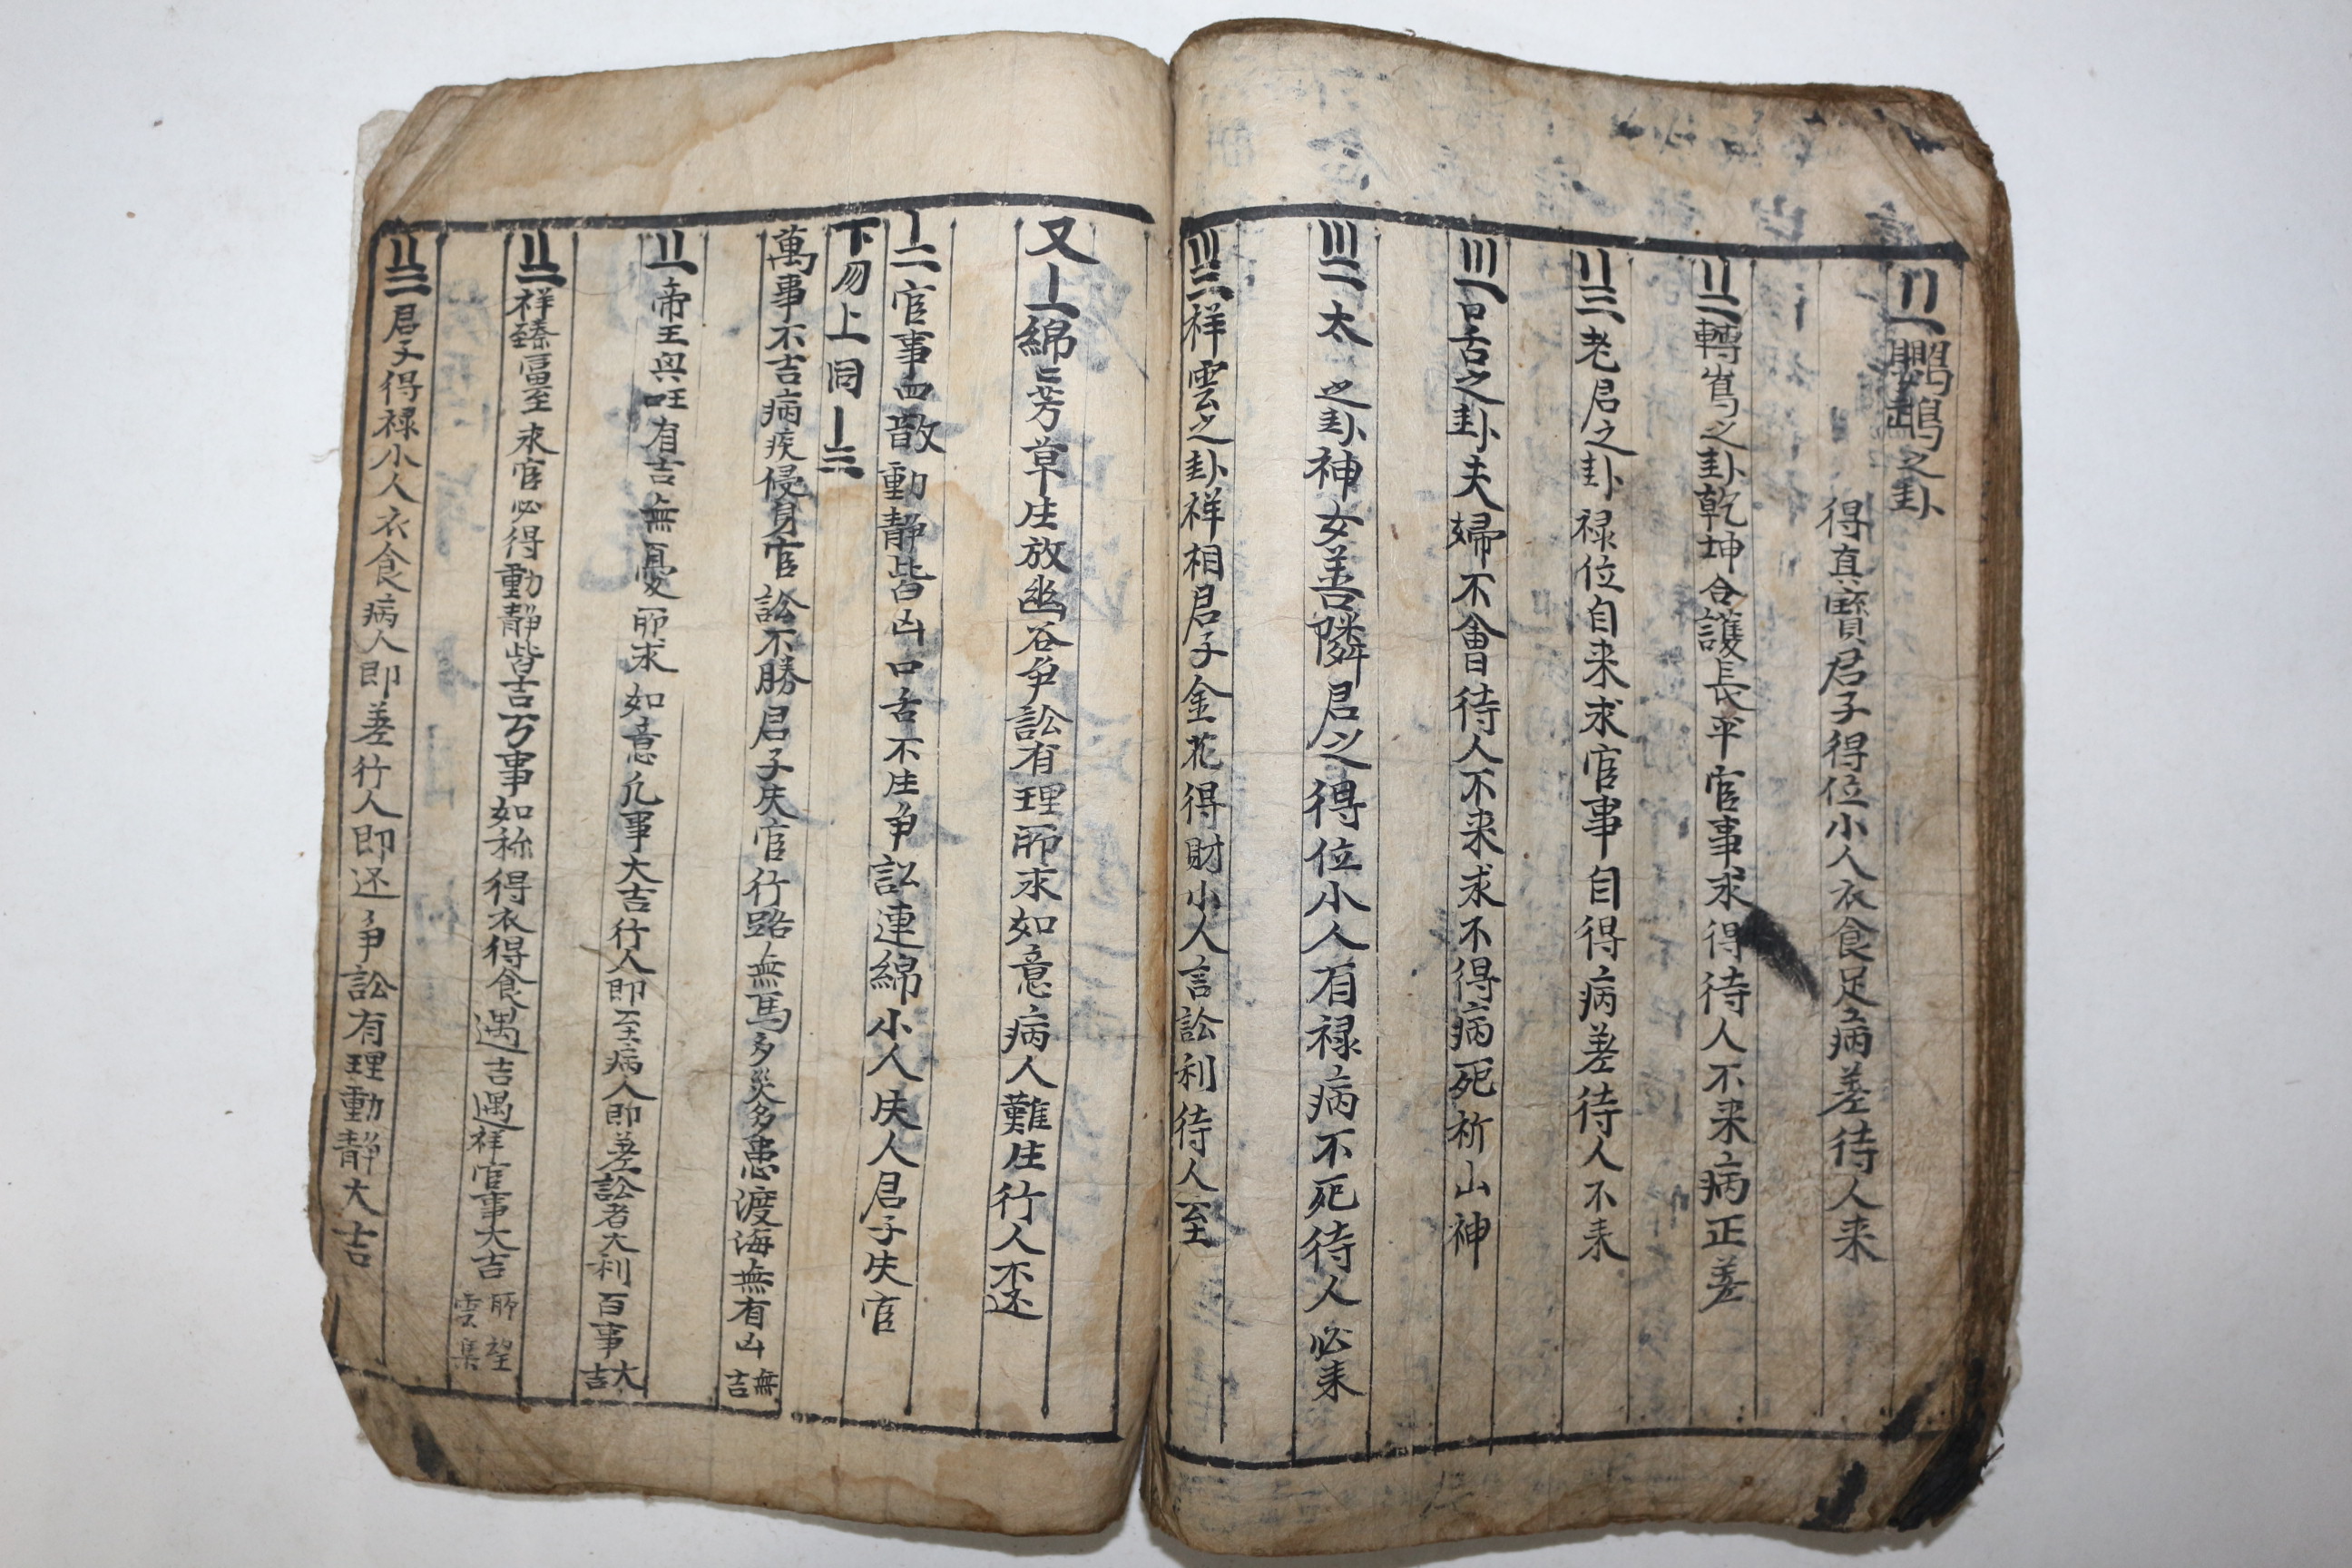 〢一鸚鵡之卦
得真寶君子得位小人衣食足病差待人来
〢二轉嵩之卦乾坤合護長平官事求得待人不来病正差
〢三老君之卦禄位自来求官事自得病差待人不来
〣一口舌之卦夫婦不會待人不来求不得病死祈山神
〣二太之卦神女善隣君之得位小人有禄病不死待人必来
〣三祥雲之卦祥相君子金花得財小人言訟利待人至
又〡一綿〻芳草生放幽谷争訟有理所求如意病人難生行人不還
〡二官事四散動靜皆凶口舌不生争訟連綿小人失人君子失官
下勿上同〡三
萬事不吉病疾侵身官訟不勝君子失官行路無馬多災多患渡海無有凶無吉
〢一帝王與旺有吉無憂所求如意凡事大吉行人即至病人即差訟者大利百事大吉
〢二祥臻冨至求官必得動靜皆吉万事如称得衣得食遇吉遇祥官事大吉所望雲集
〢三君子得禄小人衣食病人即差行人即还争訟有理動靜大吉